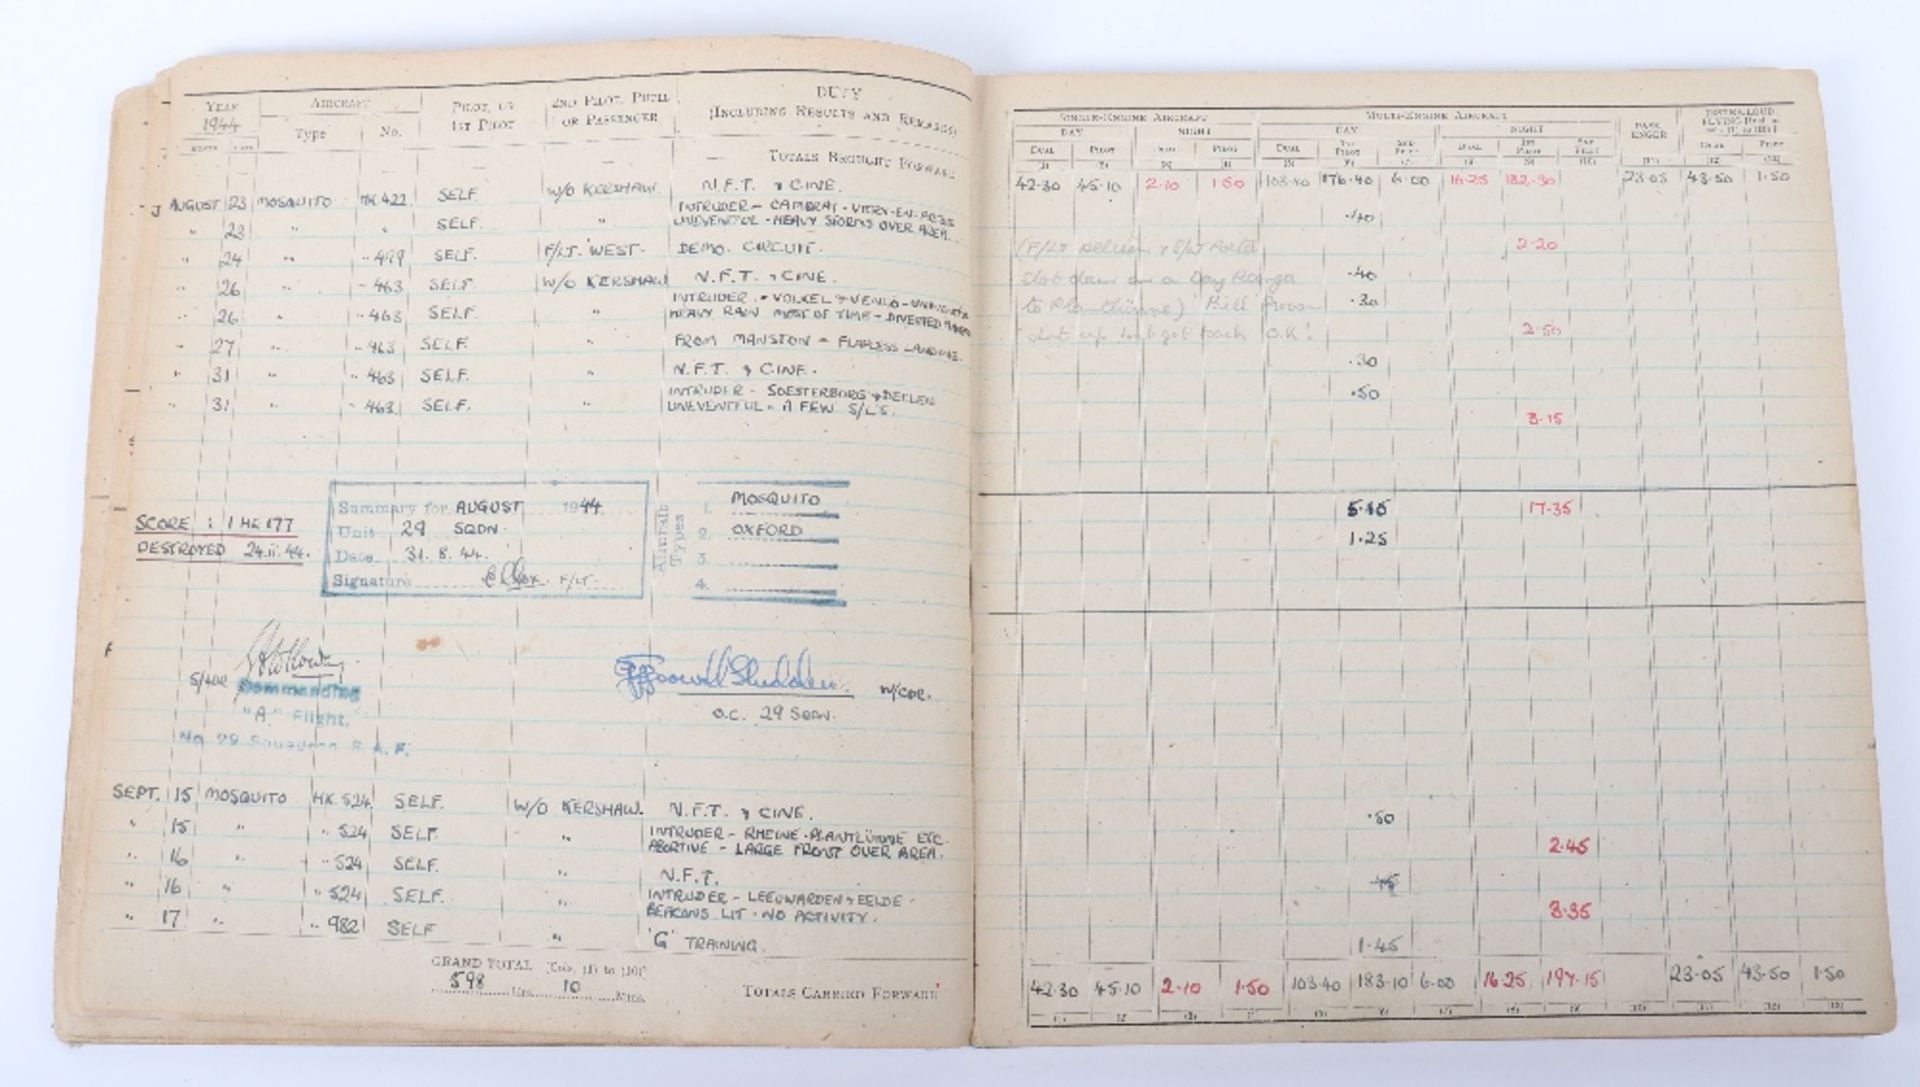 YEAR AIRCRAFT PILOT, OR 2ND PILOT, PUPIL DUTY
1944 Type No. 1ST PILOT OR PASSENGER (INCLUDING RESULTS AND REMARKS)
MONTH DATE
— — — — — TOTALS BROUGHT FORWARD
AUGUST 23 MOSQUITO HK 422 SELF. W/O KERSHAW. N.F.T. & CINE.
" 23 " " SELF. " INTRUDER - CAMBRAI - VITRY-EN-
UNEVENTFUL - HEAVY STORMS OVER AREA.
" 24 " " 499 SELF. F/LT. WEST. DEMO. CIRCUIT.
" 26 " " 463 SELF. W/O KERSHAW N.F.T. & CINE.
" 26 " " 463 SELF. " INTRUDER - VOLKEL & VENLO -
HEAVY RAIN MOST OF TIME - DIVERTED
" 27 " " 463 SELF. " FROM MANSTON - FLAPLESS LANDING.
" 31 " " 463 SELF. " N.F.T. & CINE.
" 31 " " 463 SELF. " INTRUDER - SOESTERBURG & DEELEN
UNEVENTFUL - A FEW S/L'S.
SCORE : 1 HE 177
DESTROYED 24.II.44.
Summary for AUGUST 1944
Unit 29 SQDN.
Date 31.8.44.
Signature F/LT.
Aircraft Types
1. MOSQUITO
2. OXFORD
3.
4.
S/LDR
Commanding
"A" Flight,
No 29 Squadron R.A.F.
W/CDR.
O.C. 29 SQDN.
SEPT. 15 MOSQUITO HK.524 SELF. W/O KERSHAW. N.F.T. & CINE.
" 15 " " 524 SELF. " INTRUDER - RHEINE - PLANTLÜNNE ETC.
ABORTIVE - LARGE FRONT OVER AREA.
" 16 " " 524 SELF. " N.F.T.
" 16 " " 524 SELF. " INTRUDER - LEEUWARDEN & EELDE.
BEACONS LIT - NO ACTIVITY.
" 17 " " 982 SELF " 'G' TRAINING.
GRAND TOTAL [Cols. (1) to (10)]
598 Hrs. 10 Mins.
TOTALS CARRIED FORWARD
SINGLE-ENGINE AIRCRAFT MULTI-ENGINE AIRCRAFT PASS-ENGER INSTR/CLOUD FLYING
DAY NIGHT DAY NIGHT
DUAL PILOT DUAL PILOT DUAL 1ST PILOT 2ND PILOT DUAL 1ST PILOT 2ND PILOT DUAL PILOT
(1) (2) (3) (4) (5) (6) (7) (8) (9) (10) (11) (12) (13)
42.30 45.10 2.10 1.50 103.40 176.40 6.00 16.25 182.30 23.05 43.50 1.50
.40
(F/LT & F/LT Porter 2.20
shot down on a Day Ranger .40
to Plantlünne) 'Bill' Provan .30
shot up but got back O.K! 2.50
.30
.50
3.15
5.45 17.35
1.25
.50
2.45
.45
3.35
1.45
42.30 45.10 2.10 1.50 103.40 183.10 6.00 16.25 197.15 23.05 43.50 1.50
(1) (2) (3) (4) (5) (6) (7) (8) (9) (10) (11) (12) (13)